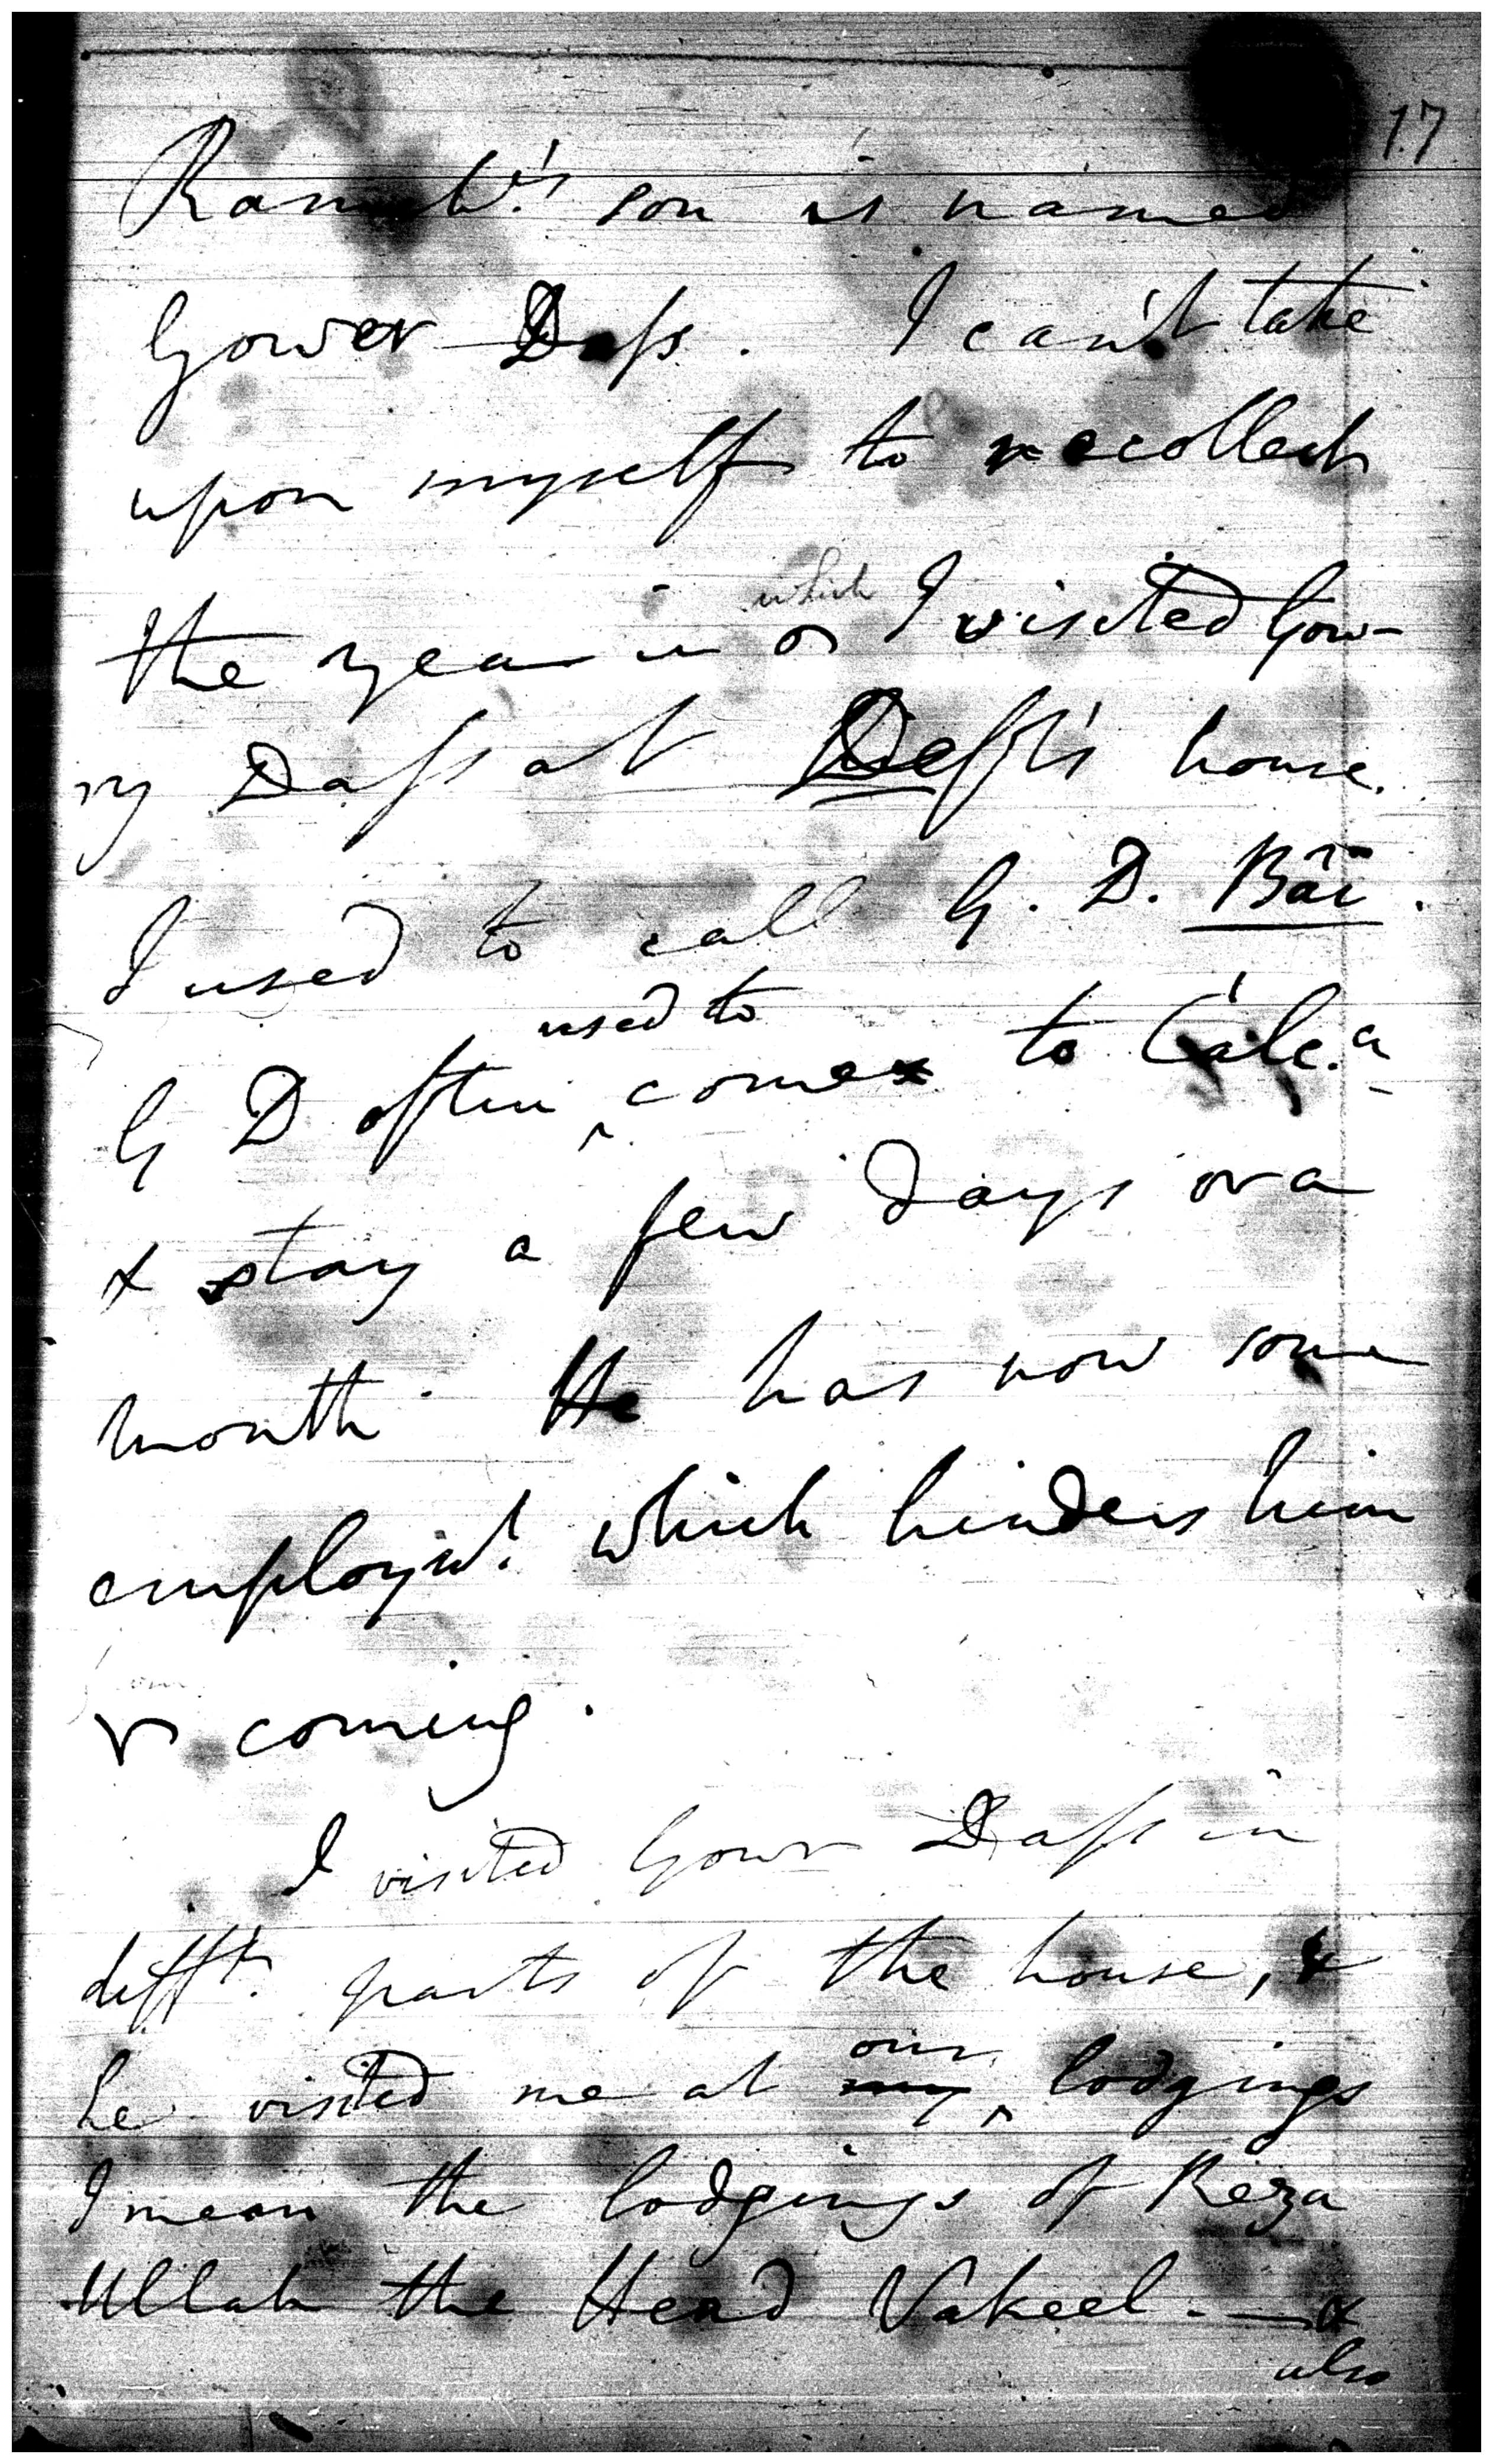 17
son is named
Gower Dass. I can't take
upon myself to recollect
the year in which I visited Gow-
ry Dass at Deft's house.
I used to call G. D. Bāi.
G D often used to come to Calc.a
& stay a few days or a
month. He has now some
employmt. which hinders him
from
coming.
I visited Gowr Dass in
difft. parts of the house, &
he visited me at my our lodgings
I mean the lodgings of Reza
Ullah the Head Vakeel. — &
also